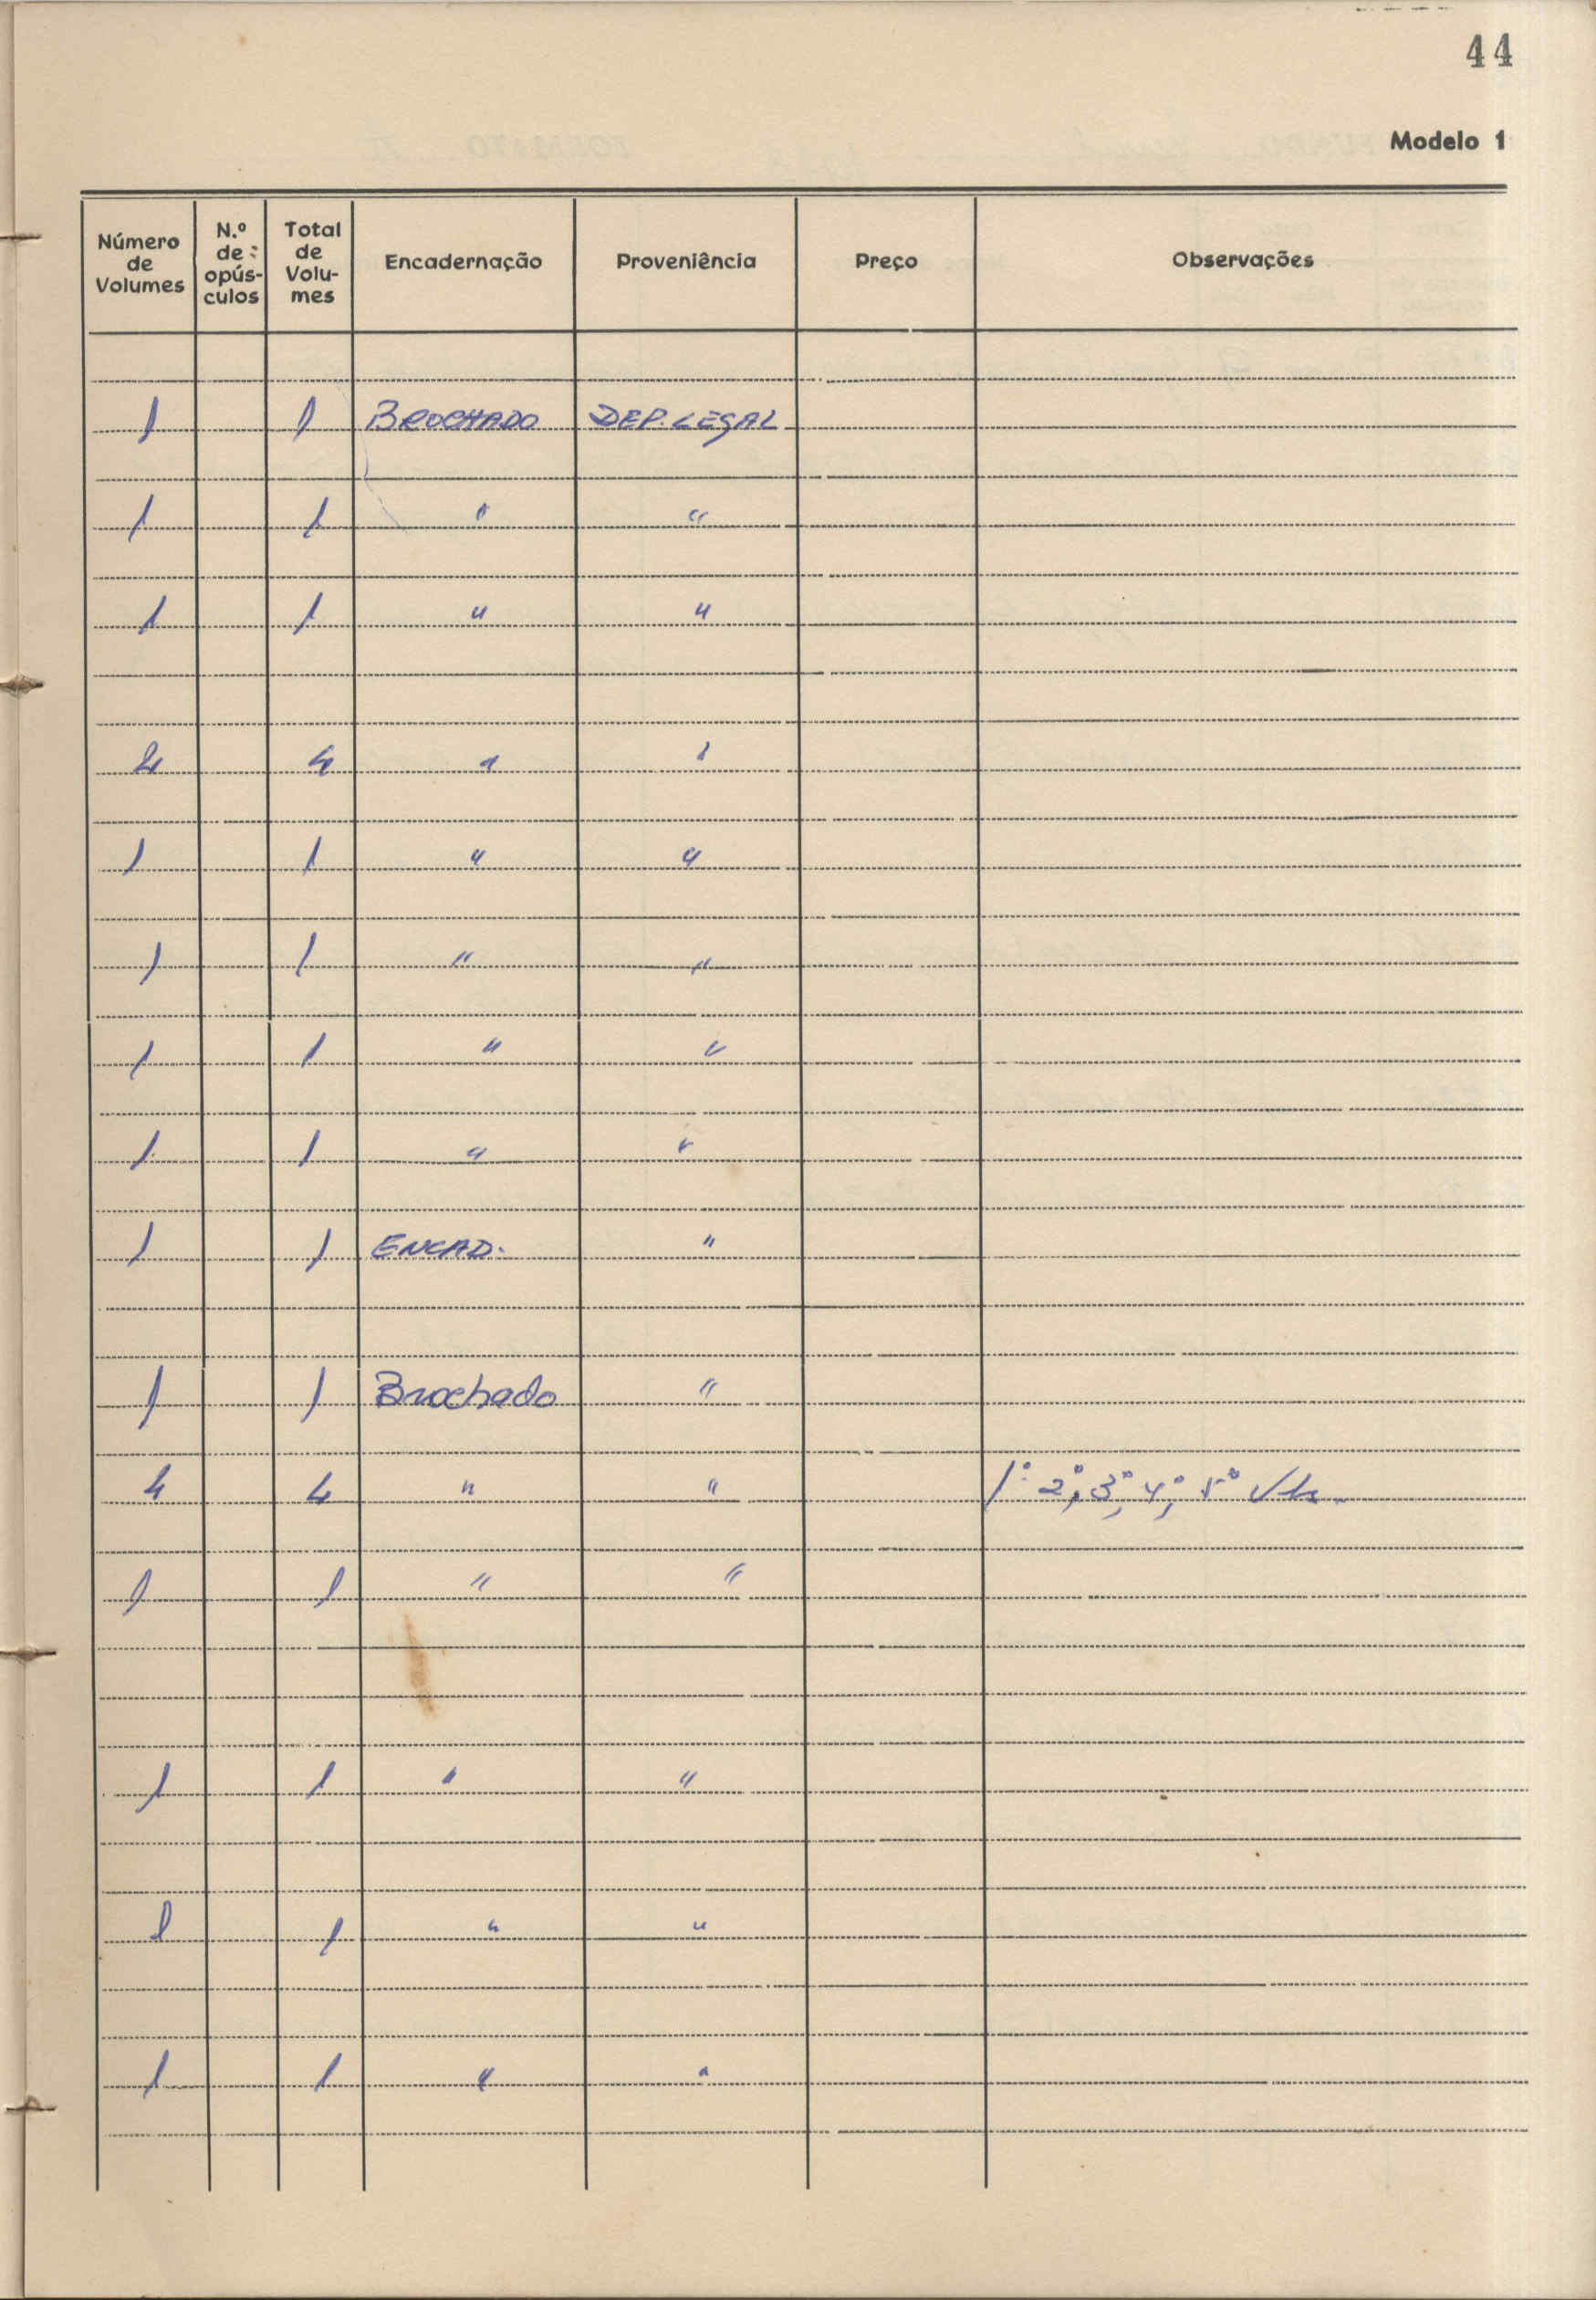 44
Modelo 1
Número de Volumes N.º de opús-culos Total de Volu-mes Encadernação Proveniência Preço Observações
1 1 BROCHADO DEP. LEGAL
1 1 " "
1 1 " "
4 4 " "
1 1 " "
1 1 " "
1 1 " "
1 1 " "
1 1 ENCAD. "
1 1 Brochado "
4 4 " " 1º 2º, 3º, 4º,
1 1 " "
1 1 " "
1 1 " "
1 1 " "